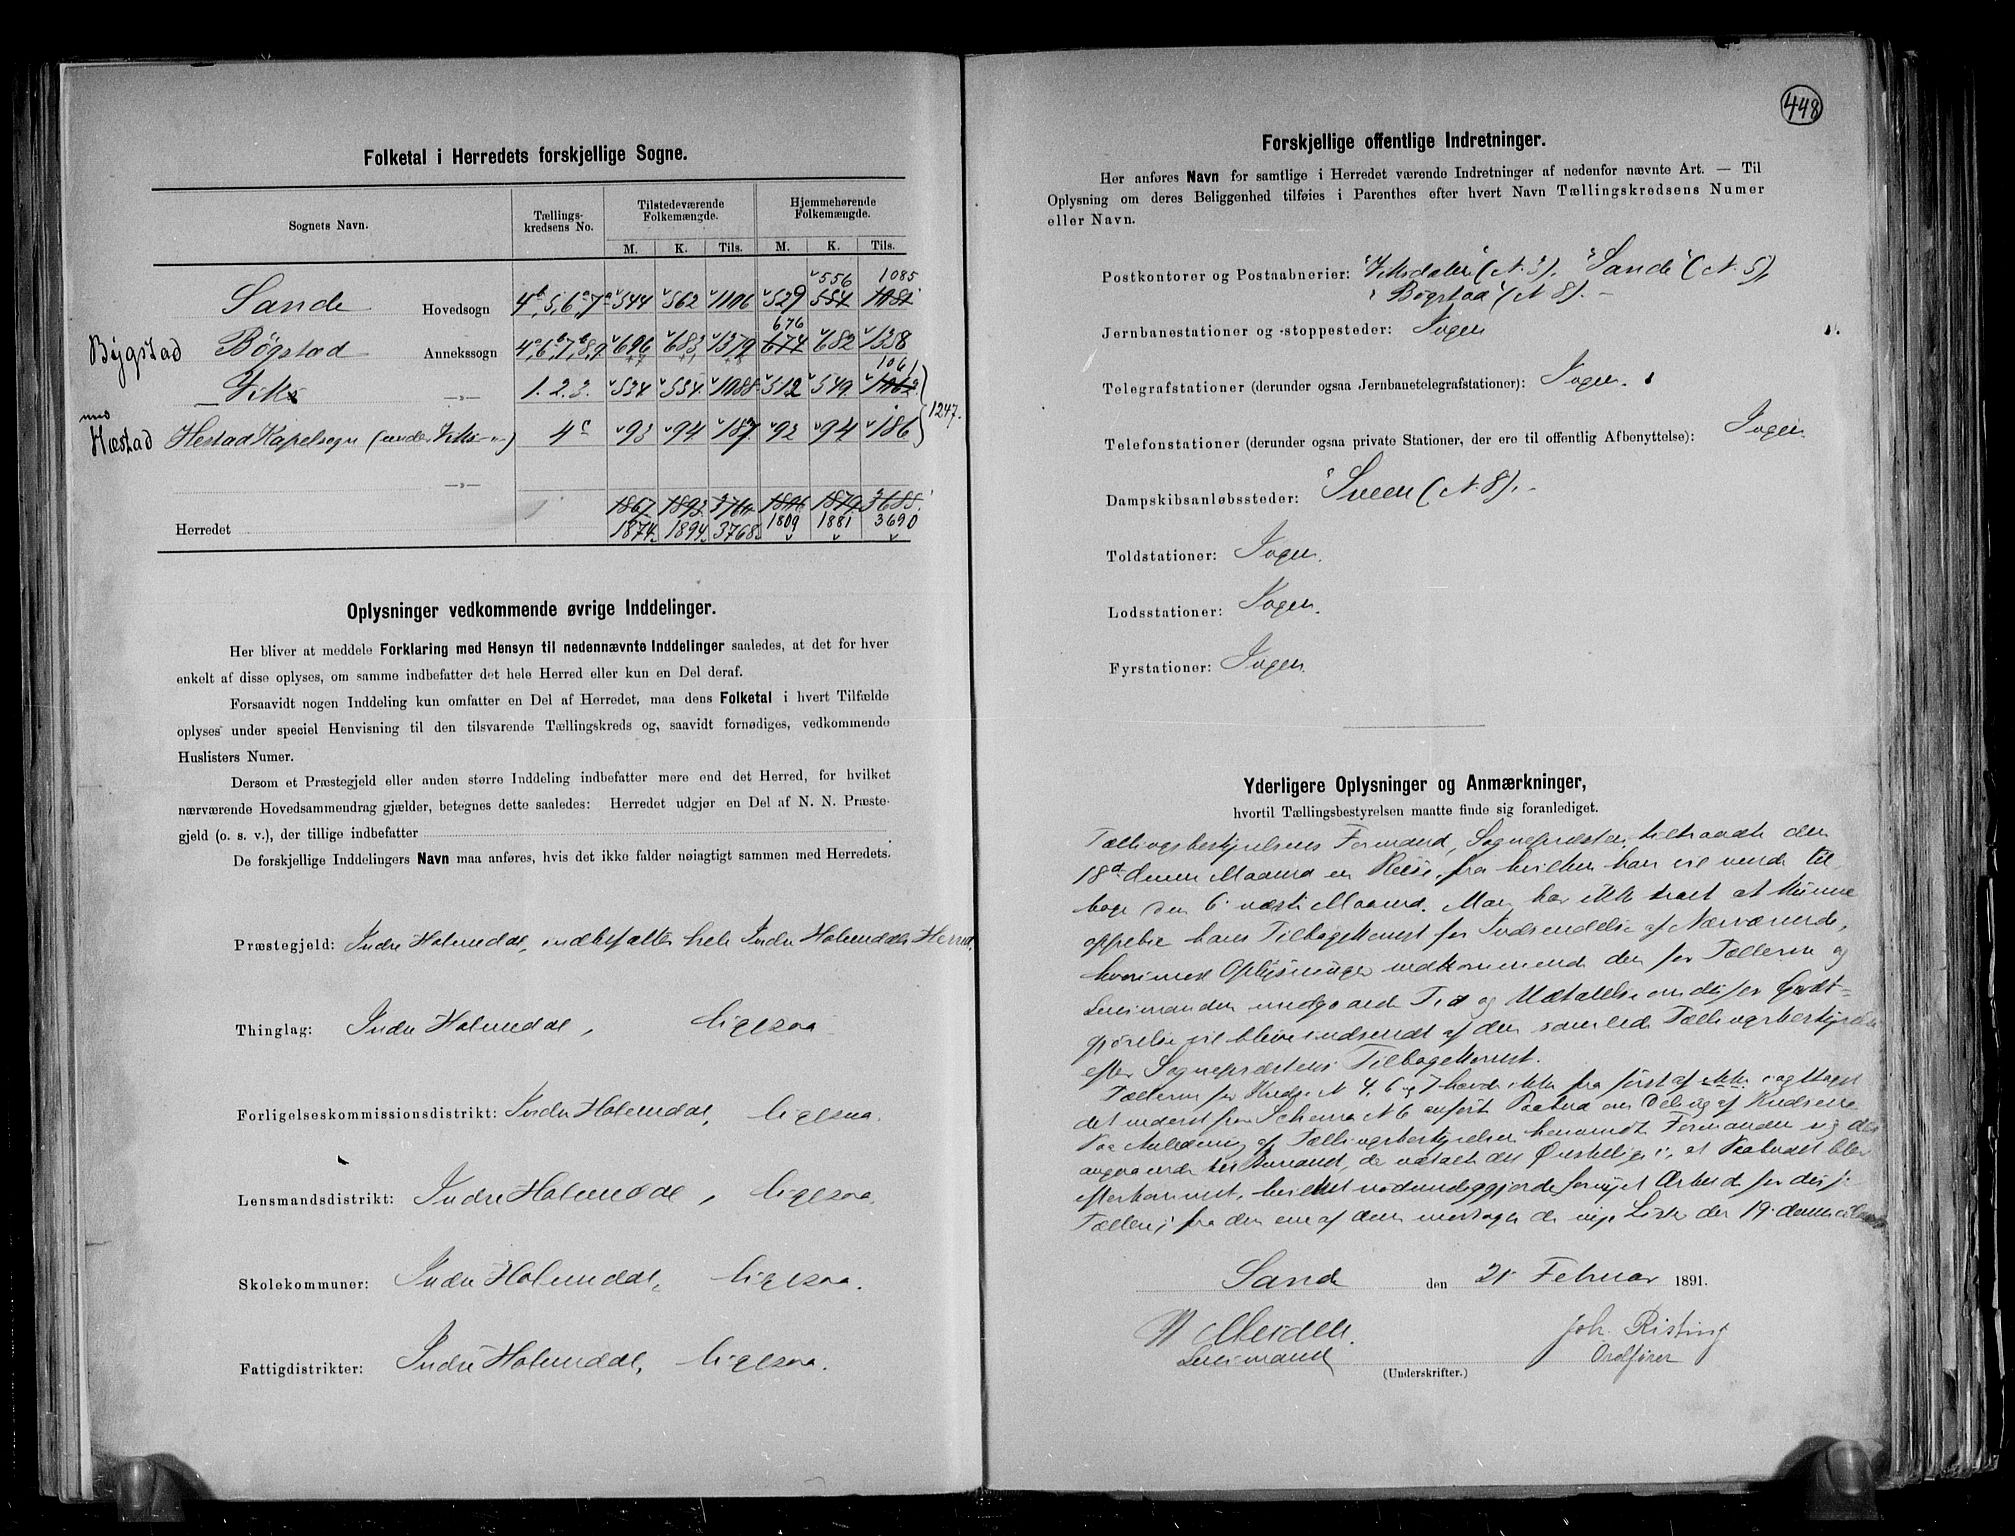 Folketal i Herredets forskjellige Sogne.
Sognets Navn. Tællings-kredsens No. Tilstedeværende Folkemængde. Hjemmehørende Folkemængde.
M. K. Tils. M. K. Tils.
556 1085
Sande Hovedsogn 4b, 5, 6a, 7a 544 562 1106 529 554 1081
676
Bygstad Bøgstad Annekssogn 4a, 6b, 7b, 8, 9 696 683 1379 674 682 1358
1061
Viks —„— 1. 2. 3. 534 554 1088 512 549 1062
med 1247.
Hæstad Hestad Kapelsogn (under Viks —„—) 4c 93 94 187 92 94 186
—„—
1867 1893 3760 1806 1879 3685
Herredet 1874 1894 3768 1809 1881 3690
Oplysninger vedkommende øvrige Inddelinger.
Her bliver at meddele Forklaring med Hensyn til nedennævnte Inddelinger saaledes, at det for hver
enkelt af disse oplyses, om samme indbefatter det hele Herred eller kun en Del deraf.
Forsaavidt nogen Inddeling kun omfatter en Del af Herredet, maa dens Folketal i hvert Tilfælde
oplyses under speciel Henvisning til den tilsvarende Tællingskreds og, saavidt fornødiges, vedkommende
Huslisters Numer.
Dersom et Præstegjeld eller anden større Inddeling indbefatter mere end det Herred, for hvilket
nærværende Hovedsammendrag gjælder, betegnes dette saaledes: Herredet udgjør en Del af N. N. Præste-
gjeld (o. s. v.), der tillige indbefatter
De forskjellige Inddelingers Navn maa anføres, hvis det ikke falder nøiagtigt sammen med Herredets.
Præstegjeld: Indre Holmedal, indbefatter hele Indre Holmedals Herred,
Thinglag: Indre Holmedal, ligesaa
Forligelseskommissionsdistrikt: Indre Holmedal, ligesaa.
Lensmandsdistrikt: Indre Holmedal, ligesaa.
Skolekommuner: Indre Holmedal, ligesaa.
Fattigdistrikter: Indre Holmedal, ligesaa.
448
Forskjellige offentlige Indretninger.
Her anføres Navn for samtlige i Herredet værende Indretninger af nedenfor nævnte Art. — Til
Oplysning om deres Beliggenhed tilføies i Parenthes efter hvert Navn Tællingskredsens Numer
eller Navn.
Postkontorer og Postaabnerier: "Viksdalen" (N. 3). "Sande" (N. 5),
"Bøgstad" (N 8). –
Jernbanestationer og -stoppesteder: Ingen
Telegrafstationer (derunder ogsaa Jernbanetelegrafstationer): Ingen.
Telefonstationer (derunder ogsaa private Stationer, der ere til offentlig Afbenyttelse): Ingen.
Dampskibsanløbssteder: "Sveen" (N. 8). –
Toldstationer: Ingen.
Lodsstationer: Ingen.
Fyrstationer: Ingen.
Yderligere Oplysninger og Anmærkninger,
hvortil Tællingsbestyrelsen maatte finde sig foranlediget.
Tællingsbestyrelsens Formand, Sognepræsten, tiltraadte den
18de denne Maaned en Reise, fra hvilken han vil vende til
bage den 6. næste Maaned. Man har ikke troet at kunne
oppebie hans Tilbagekomst for Indsendelse af Nærværende,
hvorimod Oplysninger vedkommende den for Tællerne og
Lensmanden medgaaede Tid og Udtalelse om disses Godt-
gjørelse vil blive indsendt af den samlede Tællingsbestyrelse
efter Sognepræstens Tilbagekomst.
Tællerne for Kreds N 4, 6 og 7 havde ikke fra først af
det nederst paa Schema N 6 anført Paabud om Deling af Kredsene
Paa Anledning af Tællingsbestyrelsen henvendte Formanden sig des
angaaende til Amtmand,
efterkommet, hvilket nødvendiggjorde fornyet Arbeide for disse
Tællere; fra den ene af dem modtoges de nye Lister den 19. denne Maaned
Sande den 21 Februar 1891.
Lensmand
Joh. Risting
Ordfører
(Underskrifter.)